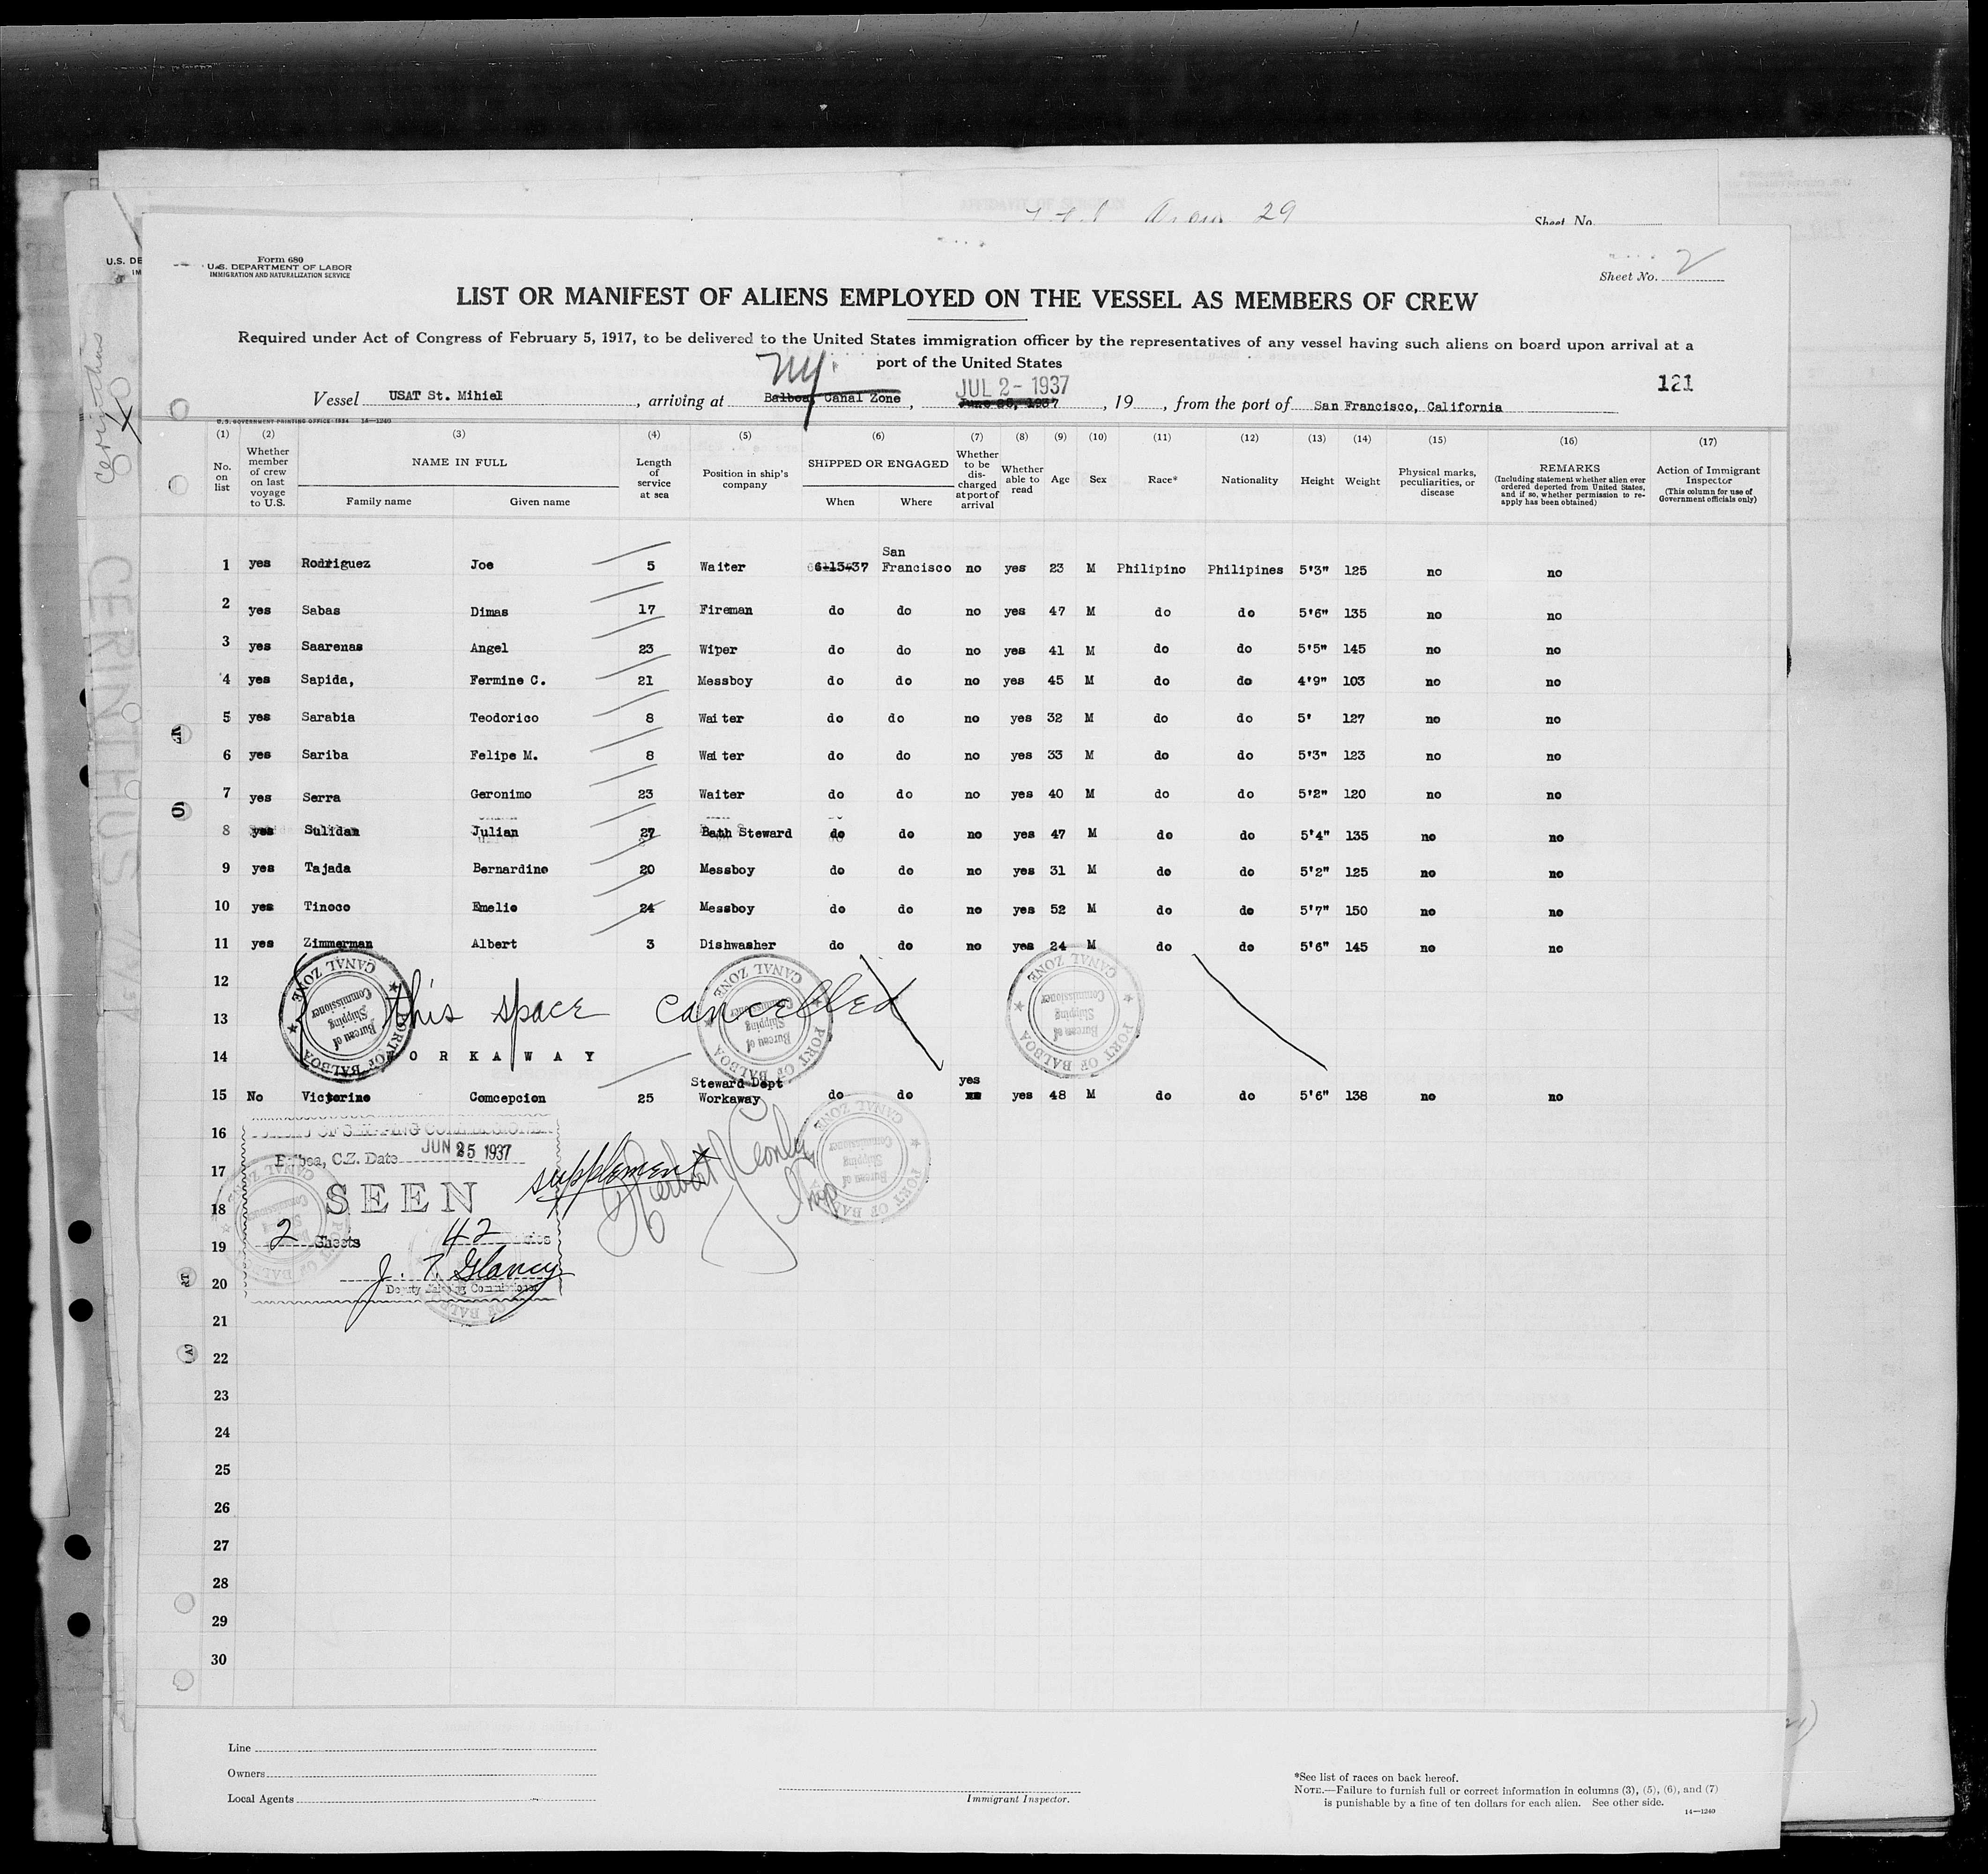 Sheet No.
29
Form 680
U.S. DEPARTMENT OF LABOR
IMMIGRATION AND NATURALIZATION SERVICE
Sheet No. 2
LIST OR MANIFEST OF ALIENS EMPLOYED ON THE VESSEL AS MEMBERS OF CREW
Required under Act of Congress of February 5, 1917, to be delivered to the United States immigration officer by the representatives of any vessel having such aliens on board upon arrival at a
port of the United States
121
NY.
JUL 2 - 1937
Vessel USAT St. Mihiel, arriving at Balboa, Canal Zone, June 25, 1937, 19, from the port of San Francisco, California
U.S. GOVERNMENT PRINTING OFFICE : 1934 14—1240
(1) (2) (3) (4) (5) (6) (7) (8) (9) (10) (11) (12) (13) (14) (15) (16) (17)
No. on list
Whether member of crew on last voyage to U.S.
NAME IN FULL
Family name Given name
Length of service at sea
Position in ship's company
SHIPPED OR ENGAGED
When Where
Whether to be discharged at port of arrival
Whether able to read
Age
Sex
Race*
Nationality
Height
Weight
Physical marks, peculiarities, or disease
REMARKS
(Including statement whether alien ever ordered deported from United States, and if so, whether permission to reapply has been obtained)
Action of Immigrant Inspector
(This column for use of Government officials only)
1 yes Rodriguez Joe 5 Waiter 6-13-37 San Francisco no yes 23 M Philipino Philipines 5'3" 125 no no
2 yes Sabas Dimas 17 Fireman do do no yes 47 M do do 5'6" 135 no no
3 yes Saarenas Angel 23 Wiper do do no yes 41 M do do 5'5" 145 no no
4 yes Sapida, Fermine C. 21 Messboy do do no yes 45 M do do 4'9" 103 no no
5 yes Sarabia Teodorico 8 Waiter do do no yes 32 M do do 5' 127 no no
6 yes Sariba Felipe M. 8 Waiter do do no yes 33 M do do 5'3" 123 no no
7 yes Serra Geronimo 23 Waiter do do no yes 40 M do do 5'2" 120 no no
8 yes Sulidan Julian 27 Bath Steward do do no yes 47 M do do 5'4" 135 no no
9 yes Tajada Bernardino 20 Messboy do do no yes 31 M do do 5'2" 125 no no
10 yes Tinoco Emelio 24 Messboy do do no yes 52 M do do 5'7" 150 no no
11 yes Zimmerman Albert 3 Dishwasher do do no yes 24 M do do 5'6" 145 no no
12
13 this space cancelled
14 ORKAWAY
15 No Victorino Comcepcion 25 Steward Dept Workaway do do yes yes 48 M do do 5'6" 138 no no
PORT OF BALBOA CANAL ZONE
Bureau of Shipping Commissioner
PORT OF BALBOA CANAL ZONE
Bureau of Shipping Commissioner
PORT OF BALBOA CANAL ZONE
Bureau of Shipping Commissioner
PORT OF BALBOA CANAL ZONE
Bureau of Shipping Commissioner
16
Balboa, C.Z. Date JUN 25 1937
17
supplement
SEEN
18
2 Sheets 42
19
J. T. Glancy
Deputy Shipping Commissioner
20
21
22
23
24
25
26
27
28
29
30
Line
Owners
Local Agents
Immigrant Inspector.
*See list of races on back hereof.
NOTE.—Failure to furnish full or correct information in columns (3), (5), (6), and (7)
is punishable by a fine of ten dollars for each alien. See other side.
14—1240
CERINTHUS